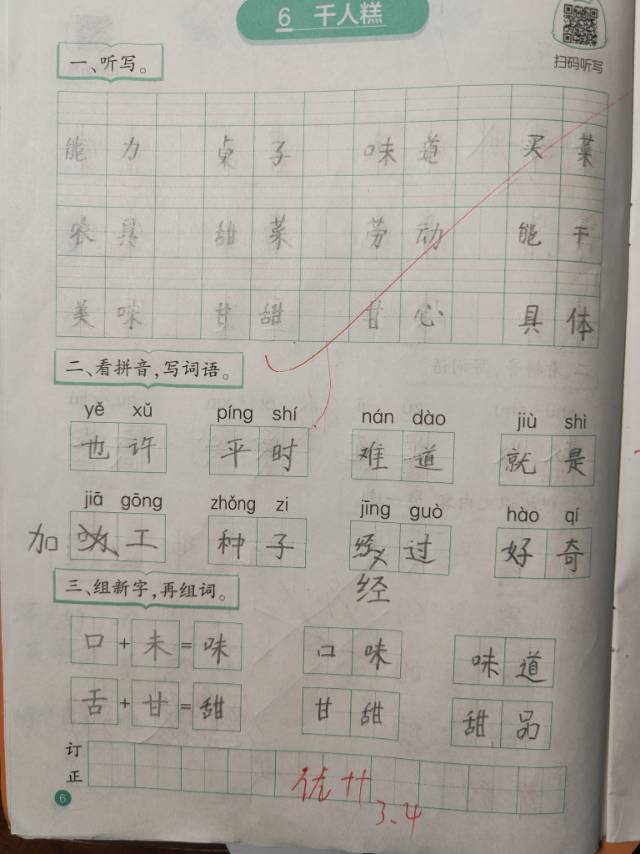 6 千人糕
扫码听写
一、听写。
能力 桌子 味道 买菜
农具 甜菜 劳动 能干
美味 甘甜 甘心 具体
二、看拼音,写词语。
yě xǔ píng shí nán dào jiù shì
也许 平时 难道 就是
jiā gōng zhǒng zi jīng guò hào qí
加 工 种子 过 好奇
经
三、组新字,再组词。
口+未=味 口味 味道
舌+甘=甜 甘甜 甜品
订正
优++
3.4
6